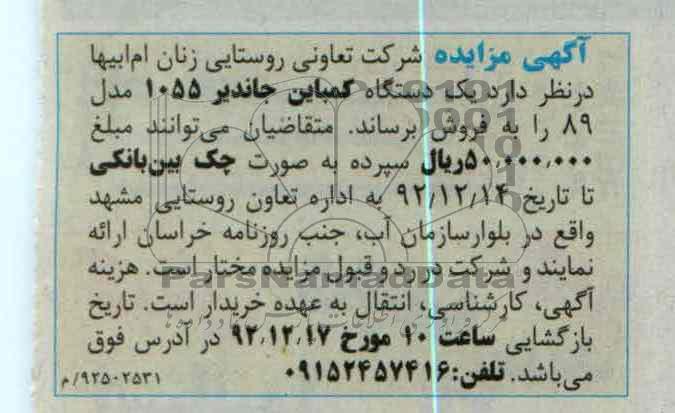 آگهی مزایده شرکت تعاونی روستایی زنان ام‌ابیها
درنظر دارد یک دستگاه کمباین جاندیر ۱۰۵۵ مدل
۸۹ را به فروش برساند. متقاضیان می‌توانند مبلغ
۵۰٬۰۰۰٬۰۰۰ریال سپرده به صورت چک بین‌بانکی
تا تاریخ ۹۲٫۱۲٫۱۴ به اداره تعاون روستایی مشهد
واقع در بلوارسازمان آب، جنب روزنامه خراسان ارائه
نمایند و شرکت در رد و قبول مزایده مختار است. هزینه
آگهی، کارشناسی، انتقال به عهده خریدار است. تاریخ
بازگشایی ساعت ۱۰ مورخ ۹۲٫۱۲٫۱۷ در آدرس فوق
می‌باشد. تلفن:۰۹۱۵۲۴۵۷۴۱۶
۹۲۵۰۲۵۳۱/م
ParsNamadData